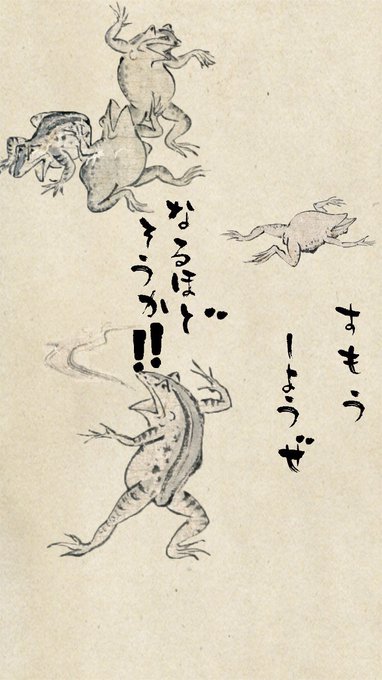 すもう
しようぜ
なるほど
そうか!!